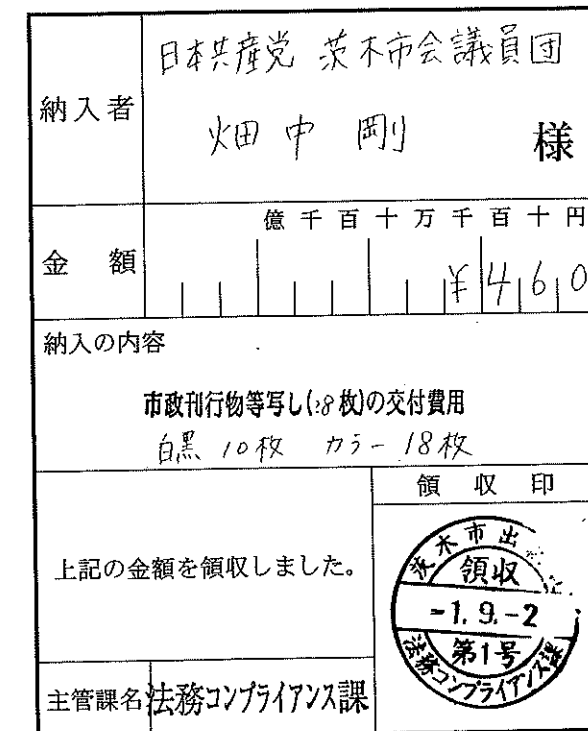 納入者
日本共産党 茨木市会議員団
畑中 剛 様
金額
億千百十万千百十円
¥460
納入の内容
市政刊行物等写し(28枚)の交付費用
白黒 10枚 カラー 18枚
上記の金額を領収しました。
領収印
茨木市出
領収
-1.9.-2
第1号
法務コンプライアンス課
主管課名
法務コンプライアンス課